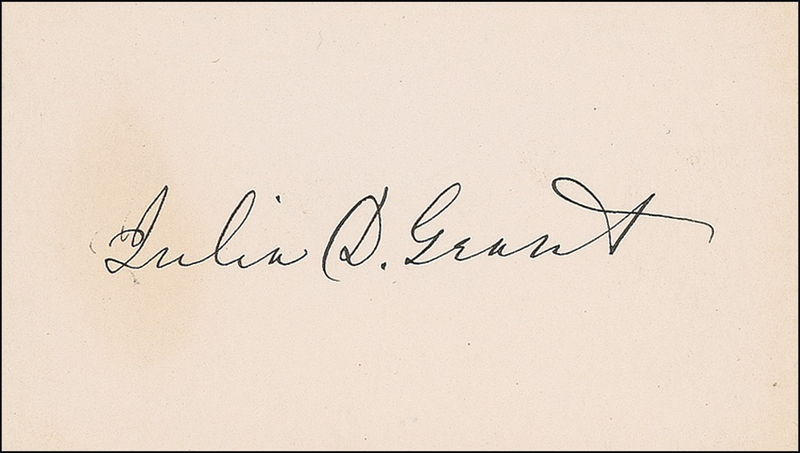 Julia D. Grant